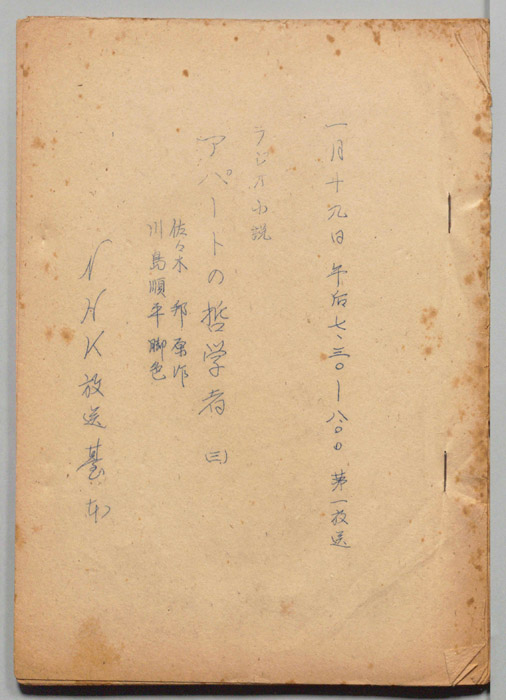 一月十九日 午后七、三〇ー八、〇〇 第一放送
ラジオ小説
アパートの哲学者 (三)
佐々木 邦 原作
川島順平 脚色
NHK 放送臺本